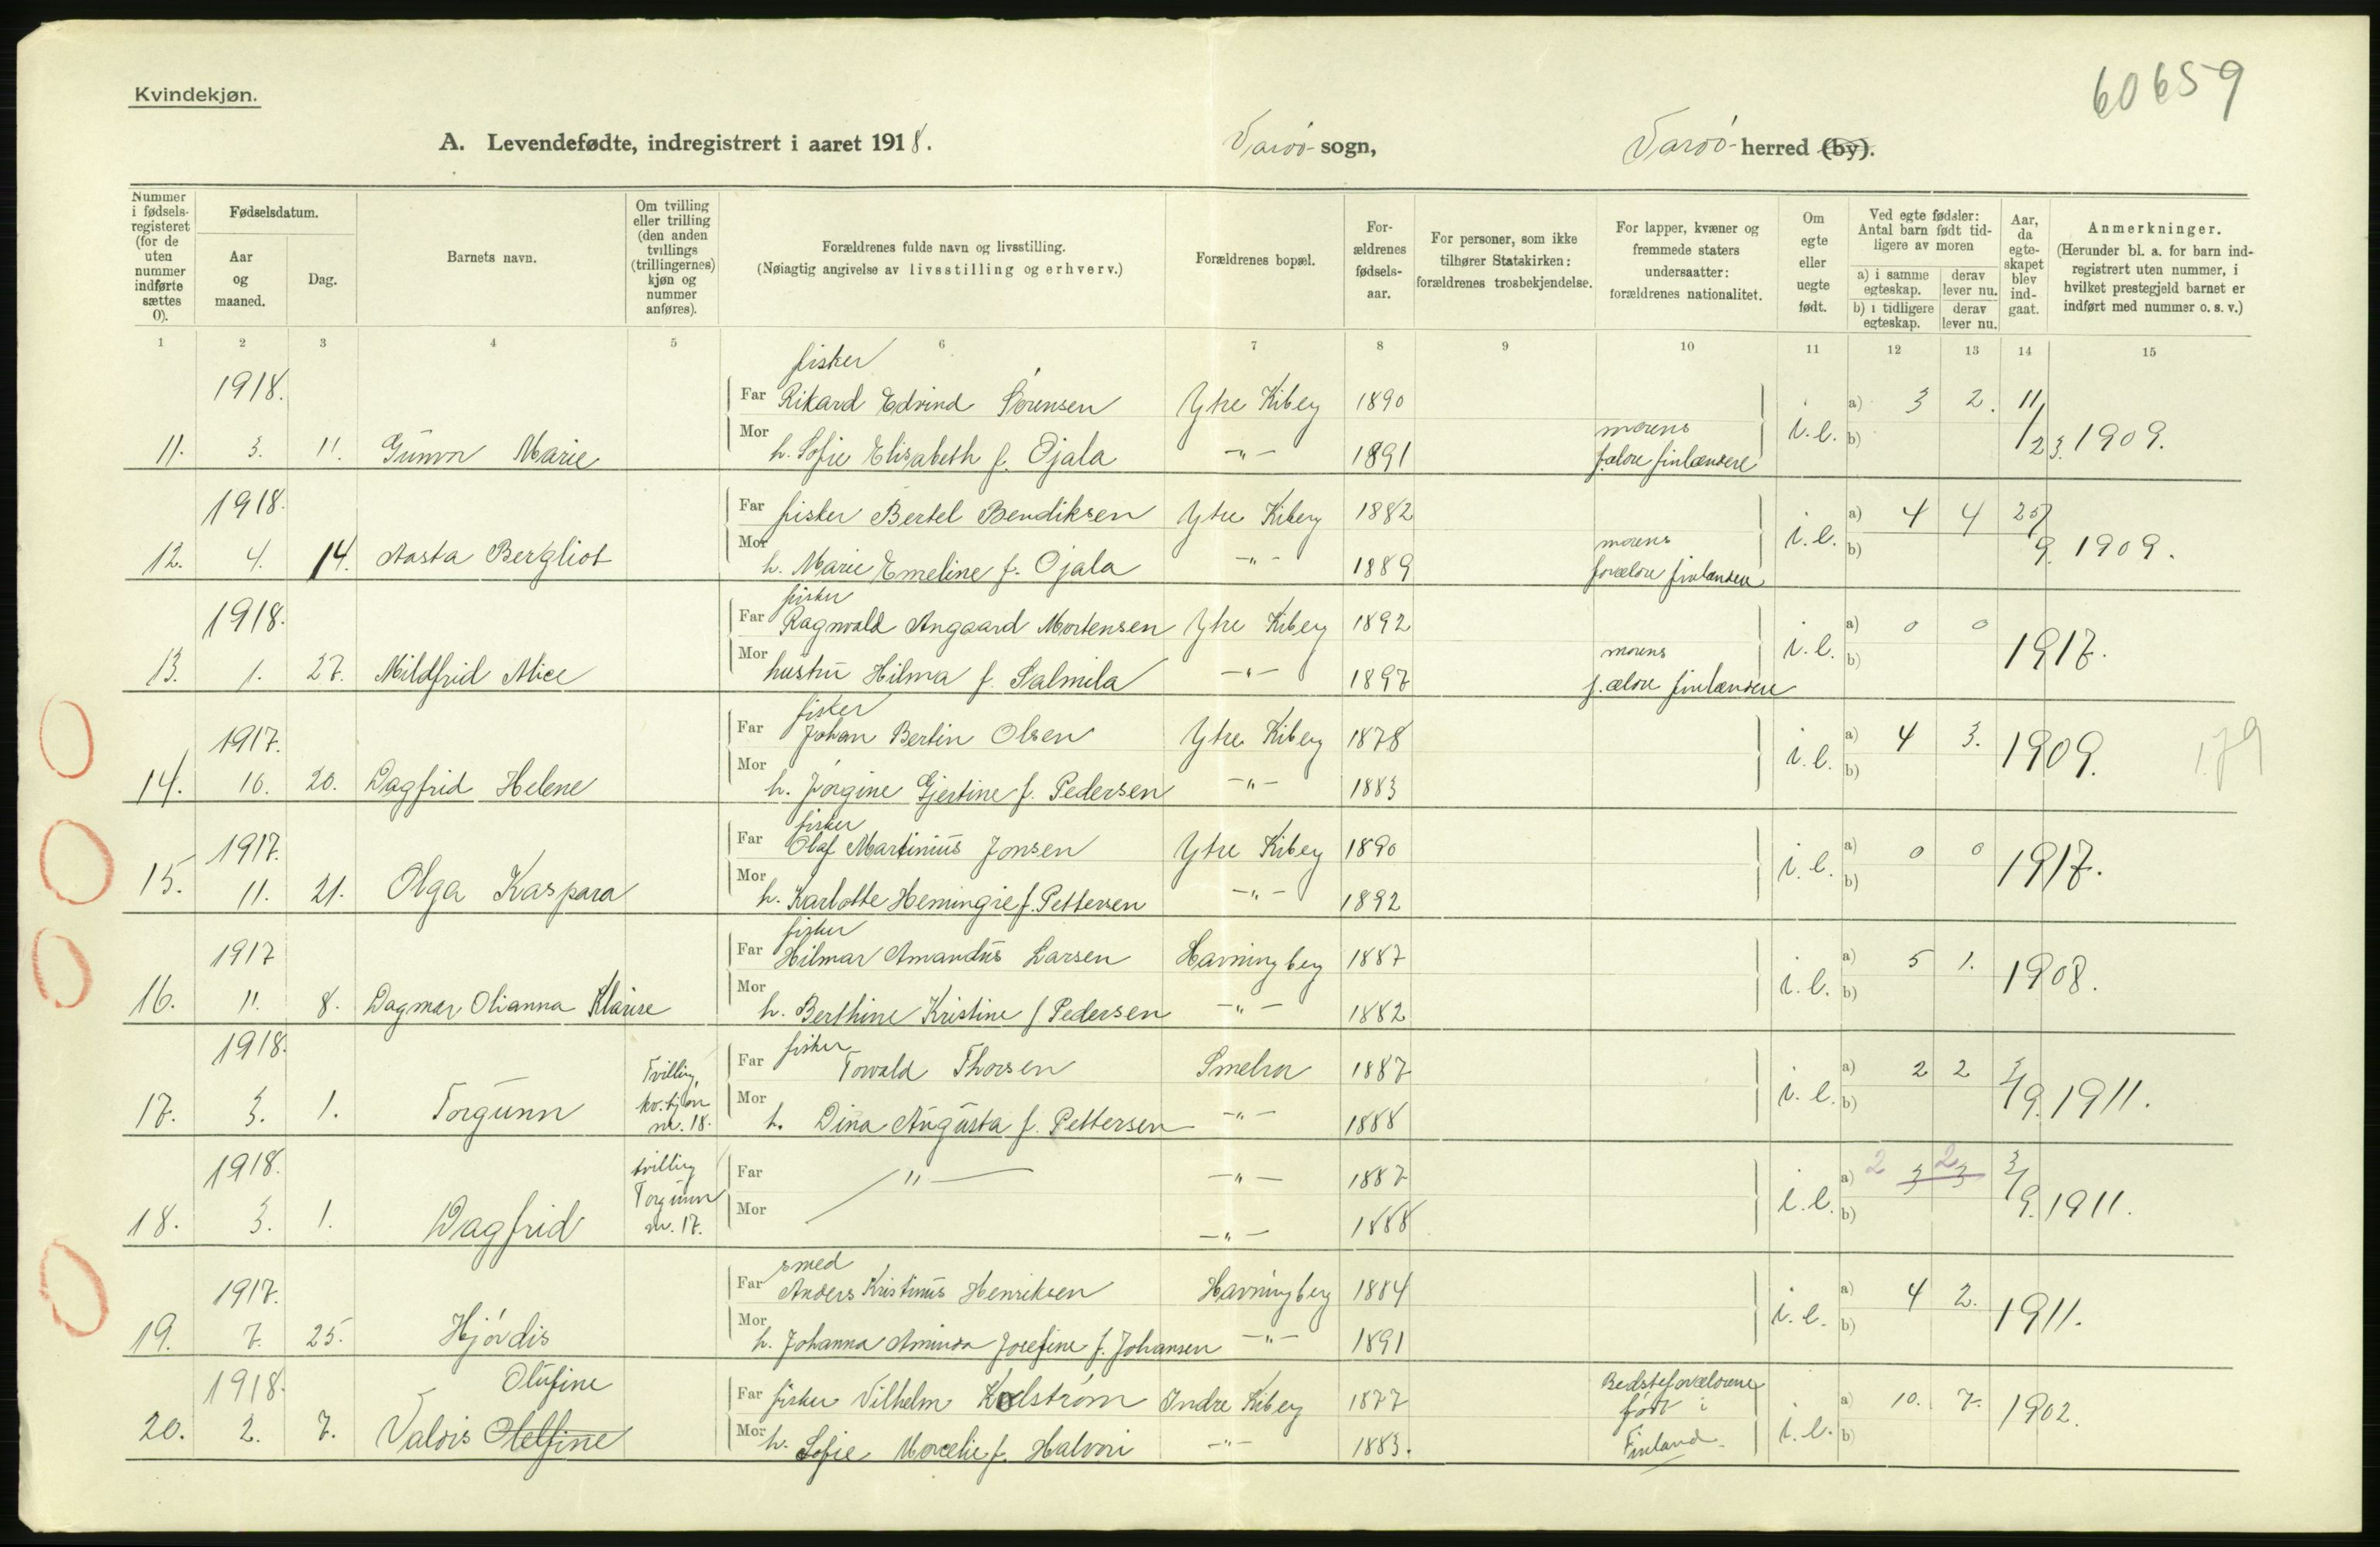 60659
Kvindekjøn.
A. Levendefødte, indregistrert i aaret 1918. Vardö sogn, Vardö herred (by).
Nummer i fødselsregisteret (for de uten nummer indførte sættes 0).
Fødselsdatum.
Aar og maaned.
Dag.
Barnets navn.
Om tvilling eller trilling (den anden tvillings (trillingernes) kjøn og nummer anføres).
Forældrenes fulde navn og livsstilling.
(Nøiagtig angivelse av livsstilling og erhverv.)
Forældrenes bopæl.
Forældrenes fødselsaar.
For personer, som ikke tilhører Statskirken: forældrenes trosbekjendelse.
For lapper, kvæner og fremmede staters undersaatter: forældrenes nationalitet.
Om egte eller uegte født.
Ved egte fødsler: Antal barn født tidligere av moren
a) i samme egteskap. derav lever nu.
b) i tidligere egteskap. derav lever nu.
Aar, da egteskapet blev indgaat.
Anmerkninger.
(Herunder bl. a. for barn indregistrert uten nummer, i hvilket prestegjeld barnet er indført med nummer o. s. v.)
1 2 3 4 5 6 7 8 9 10 11 12 13 14 15
fisker
1918. Far Rikard Edvind Sørensen Ytre Kiberg 1890 a) 3 2. 11/
11. 3. 11. Gunvor Marie Mor h. Sofie Elisabeth f. Ojala -"- 1891 morens f.ældre finlændere i.e. b) 12 3. 1909.
1918. Far fisker Bertel Bendiksen Ytre Kiberg 1882 a) 4 4 25/
12. 4. 14. Aasta Bergliot Mor h. Marie Emeline f. Ojala -"- 1889 morens forældre finlændere i.e. b) 9. 1909.
fisker
1918. Far Ragnvald Angaard Mortensen Ytre Kiberg 1892 a) 0 0
13. 1. 27. Mildfrid Alice Mor hustru Hilma f. Salmila -"- 1897 morens f.ældre finlændere i.e. b) 1917.
fisker
1917. Far Johan Bertin Olsen Ytre Kiberg 1878 a) 4 3. 1909. 179
14. 10. 20. Dagfrid Helene Mor h. Jörgine Gjertine f. Pedersen -"- 1883 i.e. b)
fisker
1917. Far Olaf Martinius Jonsen Ytre Kiberg 1890 a) 0 0 1917.
15. 11. 21. Olga Kaspara Mor h. Karlotte Hemingie f. Pettersen -"- 1892 i.e. b)
fisker
1917 Far Hilmar Amandus Larsen Havningberg 1887 a) 5 1. 1908.
16. 11. 8. Dagmar Olianna Klarise Mor h. Berthine Kristine f Pedersen -"- 1882 i.e. b)
fisker
1918. Far Torvald Thorsen Smelror 1887 a) 2 2 3/
17. 3. 1. Torgunn Tvilling, kv.kjøn nr. 18. Mor h. Dina Augusta f. Pettersen -"- 1888 i.e. b) 9. 1911.
1918. tvilling Far -"- -"- 1887 a) 2 3 2 3 3/
18. 3. 1. Dagfrid Torgunn nr. 17. Mor -"- 1888 i.e. b) 9. 1911.
smed
1917. Far Anders Kristinus Henriksen Havningberg 1884 a) 4 2. 1911.
19. 7. 25. Hjördis Mor h. Johanna Aminda Josefine f. Johansen -"- 1891 i.e. b)
1918. Olufine Far fisker Vilhelm Kolström Indre Kiberg 1877 Bedsteforældrene født i Finland. a) 10. 7. 1902.
20. 2. 7. Valdis Olelfine Mor h. Sofie Marelie f. Halvari -"- 1883. i.e. b)